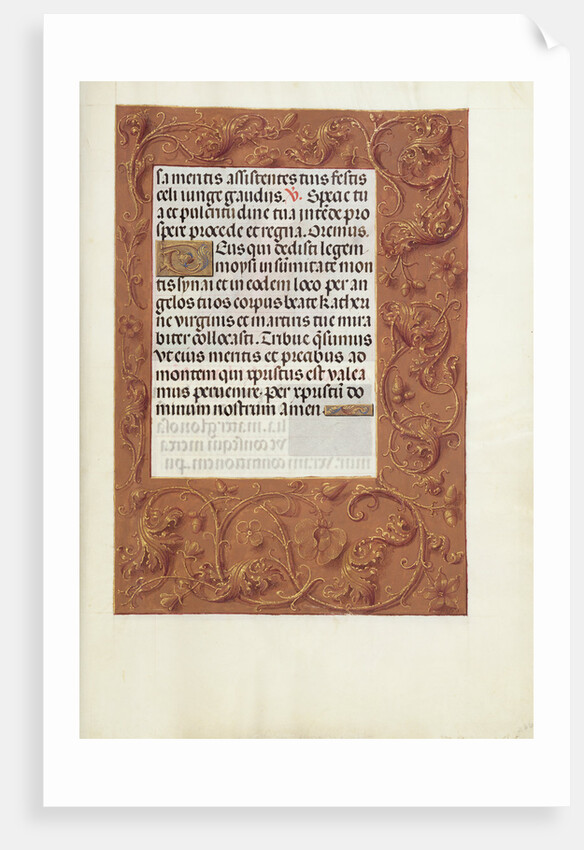 sa mentis assistentes tuis festis
celi iunge gaudijs. V. Specie tu
a et pulcritudine tua intēde pro
spere procede et regna. Oremus.
Deus qui dedisti legem
moysi in sūmitate mon
tis synai et in eodem loco per an
gelos tuos corpus beate Katheri
ne virginis et martiris tue mira
biter collocasti. Tribue q̄sumus
vt eius mentis et precibus ad
montem qui xpristus est valea
mus peruenire. Per xpristū do
minum nostrum amen.